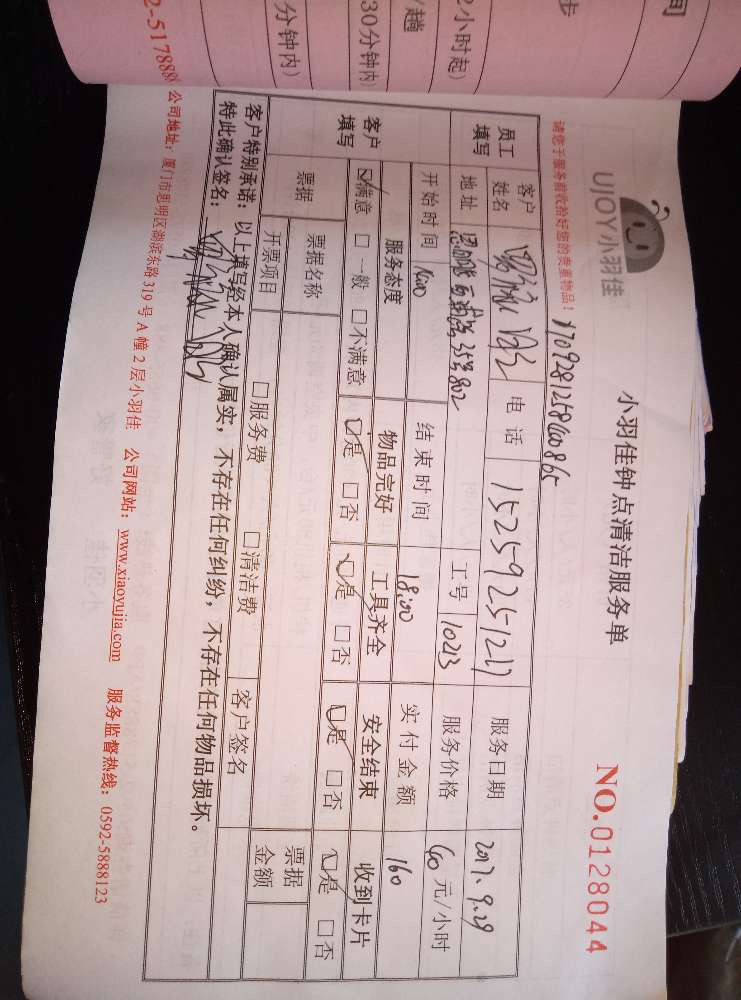 间
步
2小时起)
/趟
30分钟内)
分钟内)
2-5178888
UJOY小羽佳
小羽佳钟点清洁服务单
NO.0128044
请您于服务前收拾好您的贵重物品!
员工填写
客户姓名
电话
15259251217
服务日期
2017.9.29
地址
35号802
工号
10213
服务价格
40元/小时
开始时间
结束时间
18:00
实付金额
160
客户填写
服务态度
物品完好
工具齐全
安全结束
收到卡片
☑满意 □一般 □不满意
☑是 □否
☑是 □否
☑是 □否
☑是 □否
票据
票据名称
开票项目
□服务费
□清洁费
客户签名
票据金额
客户特别承诺:以上填写经本人确认属实,不存在任何纠纷,不存在任何物品损坏。
特此确认签名:
公司地址:厦门市思明区湖滨东路319号A幢2层小羽佳 公司网站:www.xiaoyujia.com 服务监督热线:0592-5888123